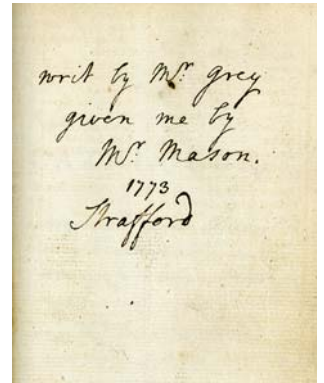 writ by Mr. Grey
given me by
Mr. Mason.
1773
Strafford